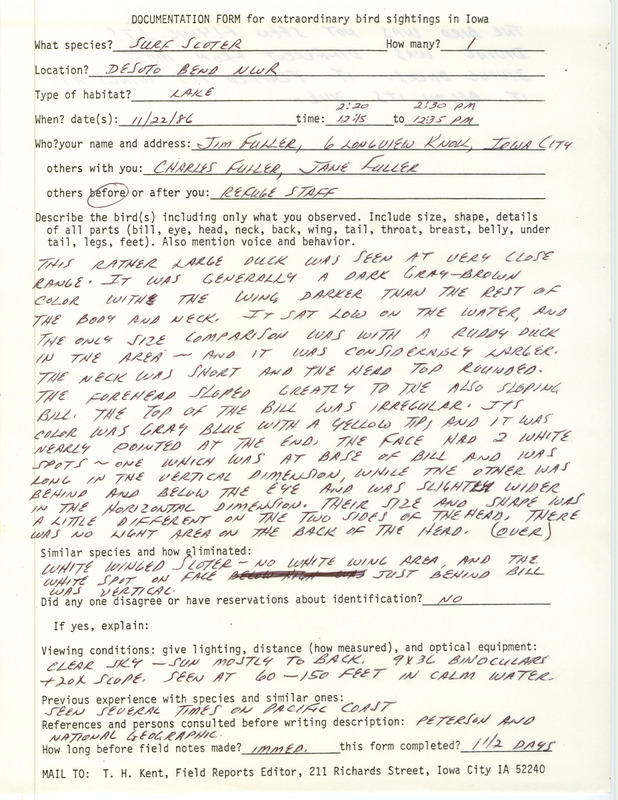 DOCUMENTATION FORM for extraordinary bird sightings in Iowa
What species? SURF SCOTER How many? 1
Location? DESOTO BEND NWR
Type of habitat? LAKE
2:20 2:30 PM
When? date(s): 11/22/86 time: 12:15 to 12:35 PM
Who?your name and address: JIM FULLER, 6 LONGVIEW KNOLL, IOWA CITY
others with you: CHARLES FULLER, JANE FULLER
others before or after you: REFUGE STAFF
Describe the bird(s) including only what you observed. Include size, shape, details
of all parts (bill, eye, head, neck, back, wing, tail, throat, breast, belly, under
tail, legs, feet). Also mention voice and behavior.
THIS RATHER LARGE DUCK WAS SEEN AT VERY CLOSE
RANGE. IT WAS GENERALLY A DARK GRAY-BROWN
COLOR WITH THE WING DARKER THAN THE REST OF
THE BODY AND NECK. IT SAT LOW ON THE WATER, AND
THE ONLY SIZE COMPARISON WAS WITH A RUDDY DUCK
IN THE AREA - AND IT WAS CONSIDERABLY LARGER.
THE NECK WAS SHORT AND THE HEAD TOP ROUNDED.
THE FOREHEAD SLOPED GREATLY TO THE ALSO SLOPING
BILL. THE TOP OF THE BILL WAS IRREGULAR. ITS
COLOR WAS GRAY BLUE WITH A YELLOW TIP, AND IT WAS
NEARLY POINTED AT THE END. THE FACE HAD 2 WHITE
SPOTS - ONE WHICH WAS AT BASE OF BILL AND WAS
LONG IN THE VERTICAL DIMENSION, WHILE THE OTHER WAS
BEHIND AND BELOW THE EYE AND WAS SLIGHTLY WIDER
IN THE HORIZONTAL DIMENSION. THEIR SIZE AND SHAPE WAS
A LITTLE DIFFERENT ON THE TWO SIDES OF THE HEAD, THERE
WAS NO LIGHT AREA ON THE BACK OF THE HEAD. (OVER)
Similar species and how eliminated:
WHITE WINGED SCOTER - NO WHITE WING AREA, AND THE
WHITE SPOT ON FACE JUST BEHIND BILL
WAS VERTICAL.
Did any one disagree or have reservations about identification? NO
If yes, explain:
Viewing conditions: give lighting, distance (how measured), and optical equipment:
CLEAR SKY - SUN MOSTLY TO BACK. 9X36 BINOCULARS
+20X SCOPE. SEEN AT 60-150 FEET IN CALM WATER.
Previous experience with species and similar ones:
SEEN SEVERAL TIMES ON PACIFIC COAST
References and persons consulted before writing description: PETERSON AND
NATIONAL GEOGRAPHIC.
How long before field notes made? IMMED. this form completed? 1 1/2 DAYS
MAIL TO: T. H. Kent, Field Reports Editor, 211 Richards Street, Iowa City IA 52240